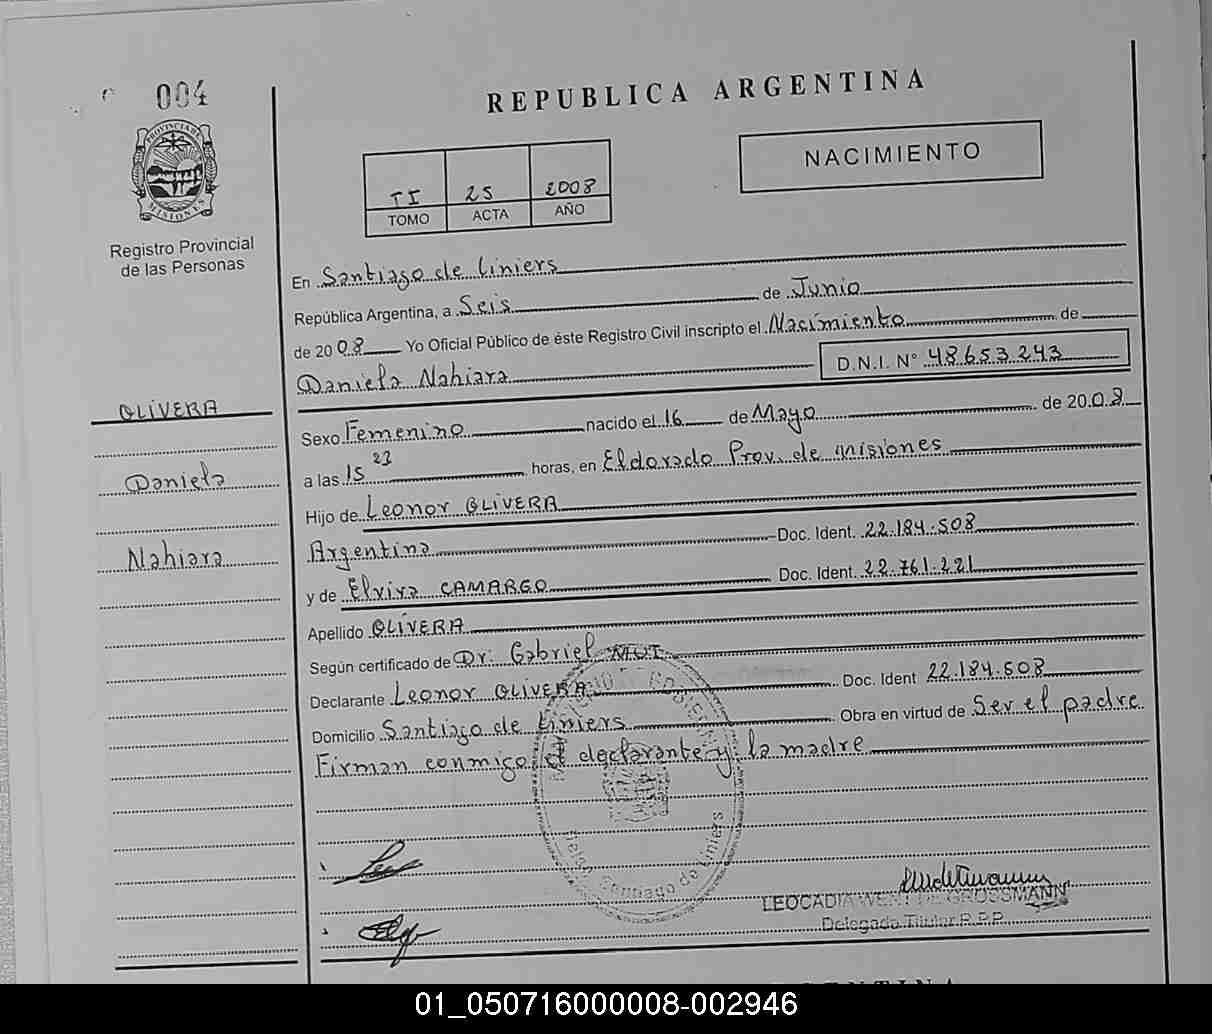 004
PROVINCIA DE
MISIONES
Registro Provincial
de las Personas
OLIVERA
Daniela
Nahiara
REPUBLICA ARGENTINA
TI 25 2008
TOMO ACTA AÑO
NACIMIENTO
En Santiago de Liniers
República Argentina, a Seis de Junio
de 2008 Yo Oficial Público de éste Registro Civil inscripto el Nacimiento de
Daniela Nahiara D.N.I. N° 48.653.243
Sexo Femenino nacido el 16 de Mayo de 2008
a las 15 23 horas, en Eldorado Prov. de Misiones
Hijo de Leonor OLIVERA
Argentina Doc. Ident. 22.184.508
y de Elvira CAMARGO Doc. Ident. 22.761.221
Apellido OLIVERA
Según certificado de Dr. Gabriel
Declarante Leonor OLIVERA Doc. Ident 22.184.508
Domicilio Santiago de Liniers Obra en virtud de Ser el padre
Firman conmigo el declarante y la madre
Santiago de Liniers
LEOCADIA WENT DE GROSSMANN
Delegado Titular R.P.P.
01_050716000008-002946